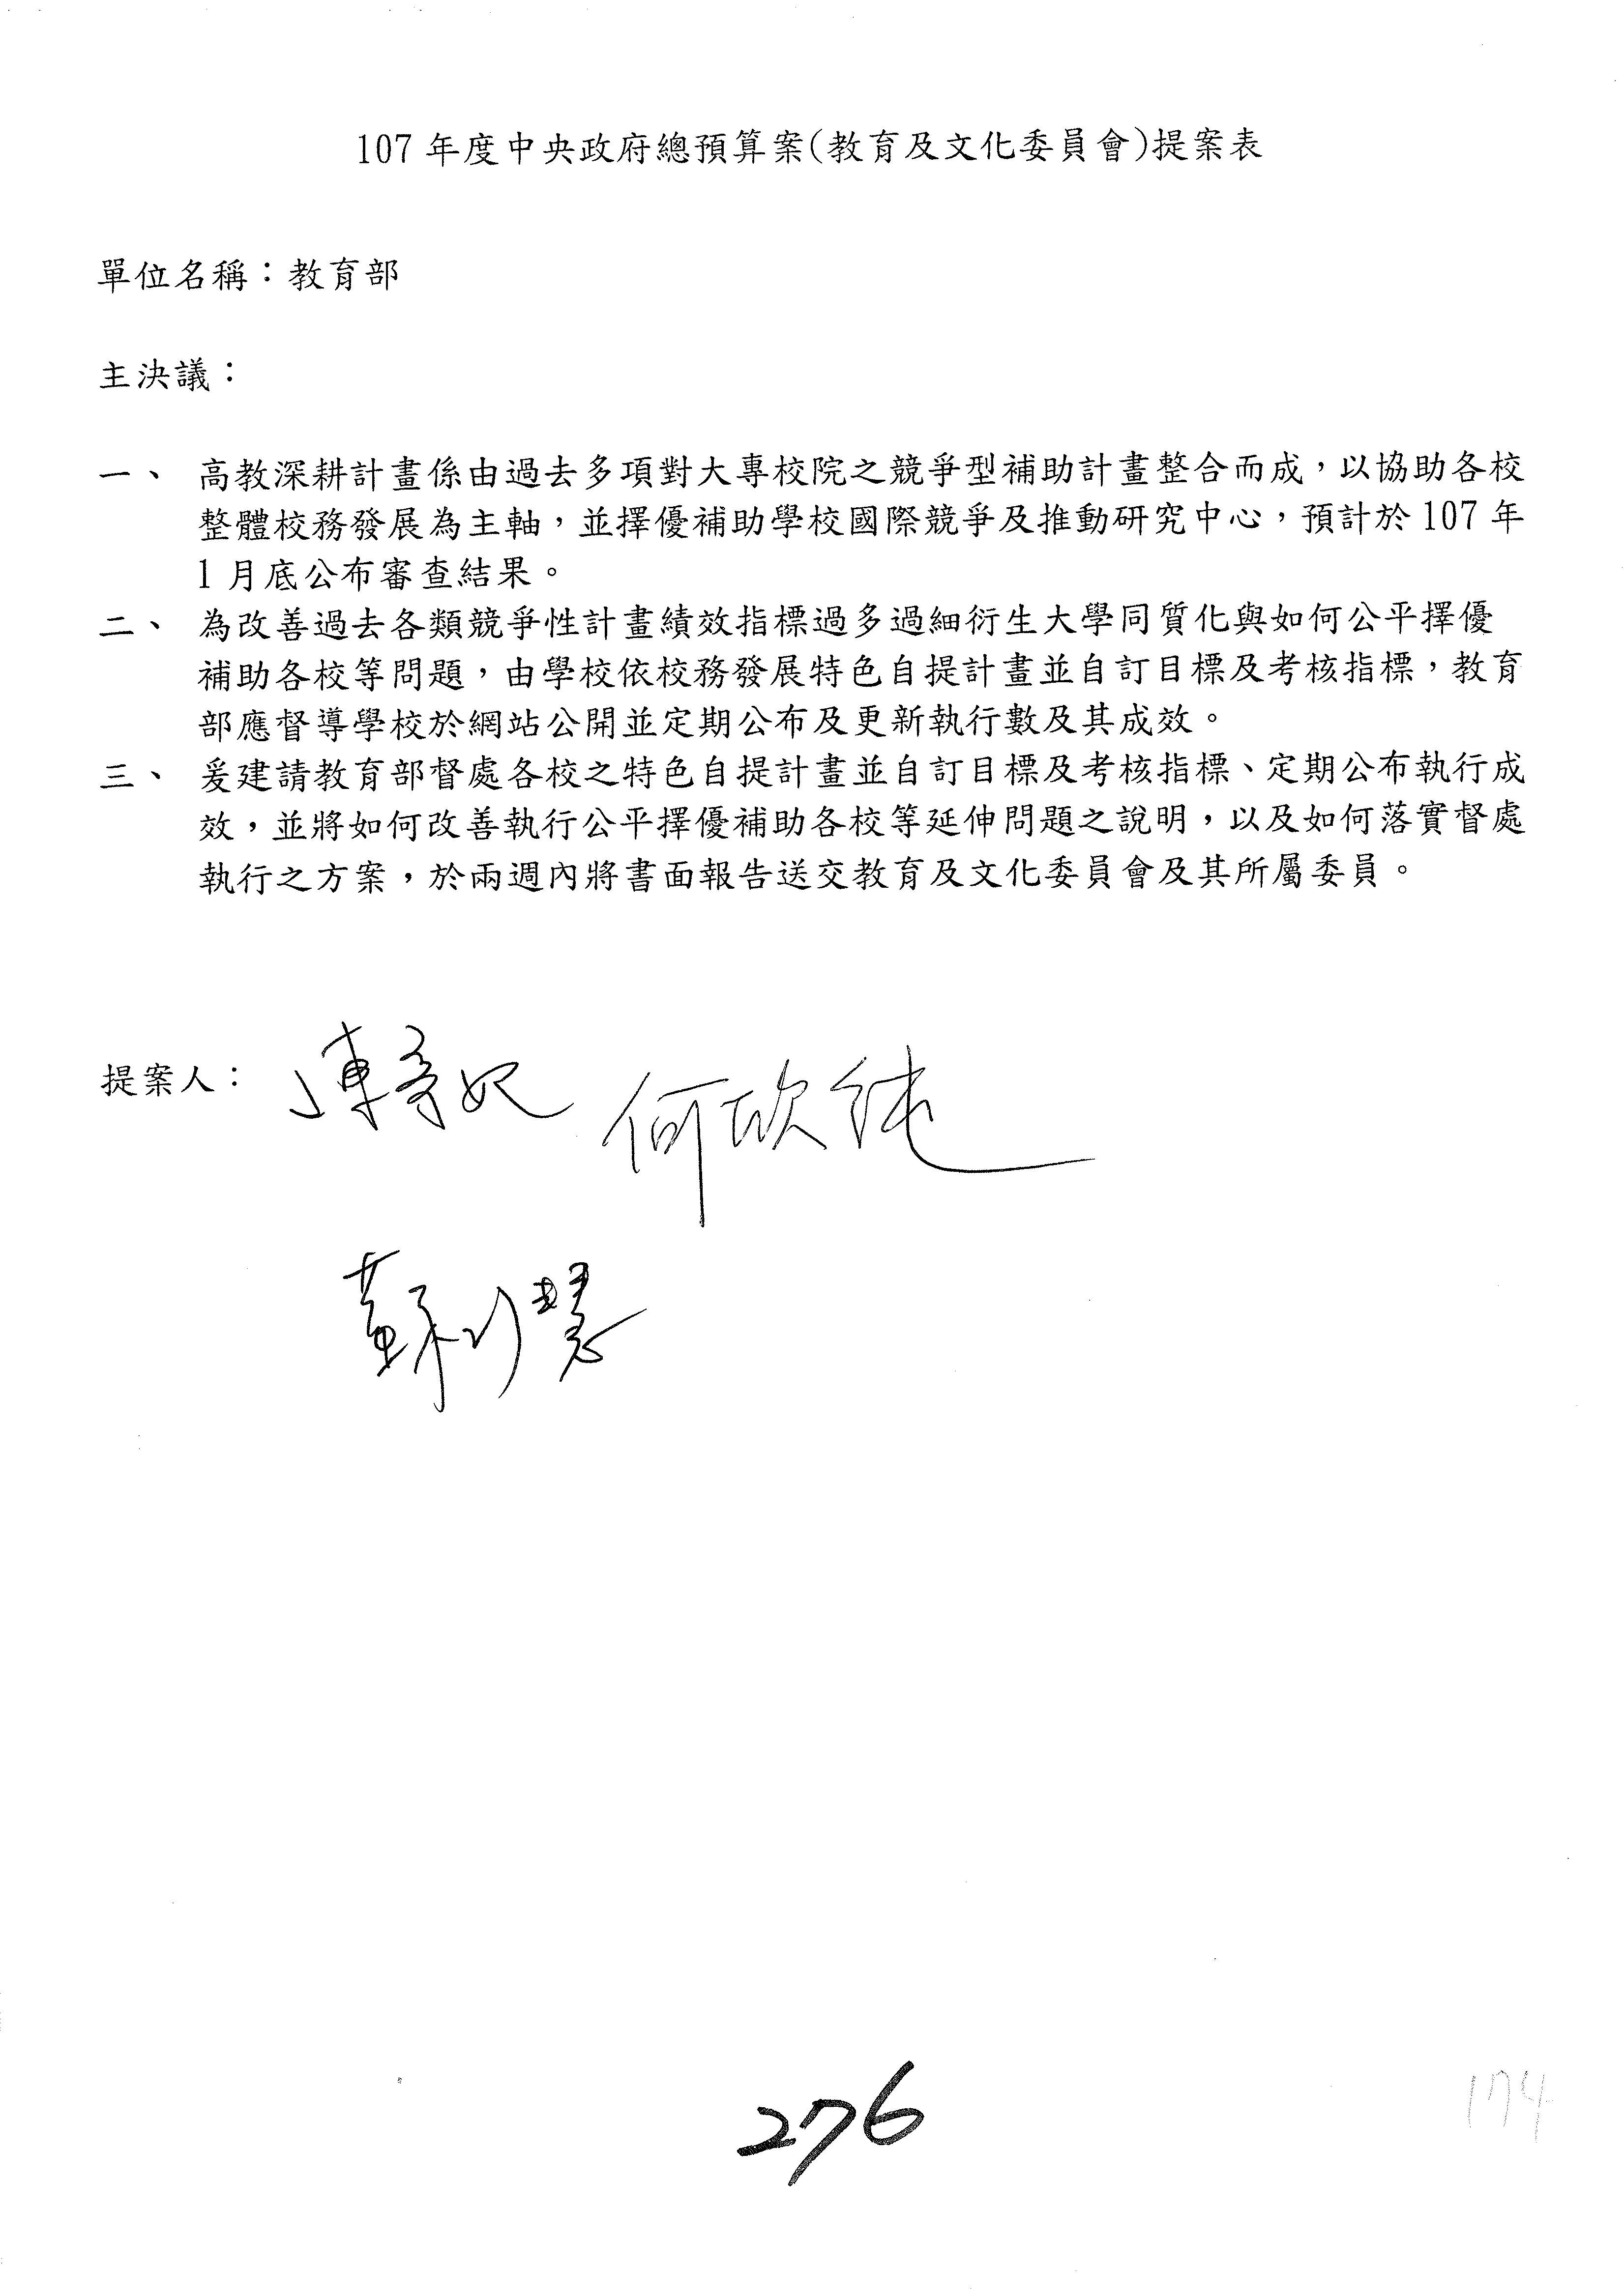 107 年度中央政府總預算案(教育及文化委員會)提案表
單位名稱：教育部
主決議：
一、 高教深耕計畫係由過去多項對大專校院之競爭型補助計畫整合而成，以協助各校
整體校務發展為主軸，並擇優補助學校國際競爭及推動研究中心，預計於 107 年
1 月底公布審查結果。
二、 為改善過去各類競爭性計畫績效指標過多過細衍生大學同質化與如何公平擇優
補助各校等問題，由學校依校務發展特色自提計畫並自訂目標及考核指標，教育
部應督導學校於網站公開並定期公布及更新執行數及其成效。
三、 爰建請教育部督處各校之特色自提計畫並自訂目標及考核指標、定期公布執行成
效，並將如何改善執行公平擇優補助各校等延伸問題之說明，以及如何落實督處
執行之方案，於兩週內將書面報告送交教育及文化委員會及其所屬委員。
提案人： 何欣純
蘇巧慧
276
174